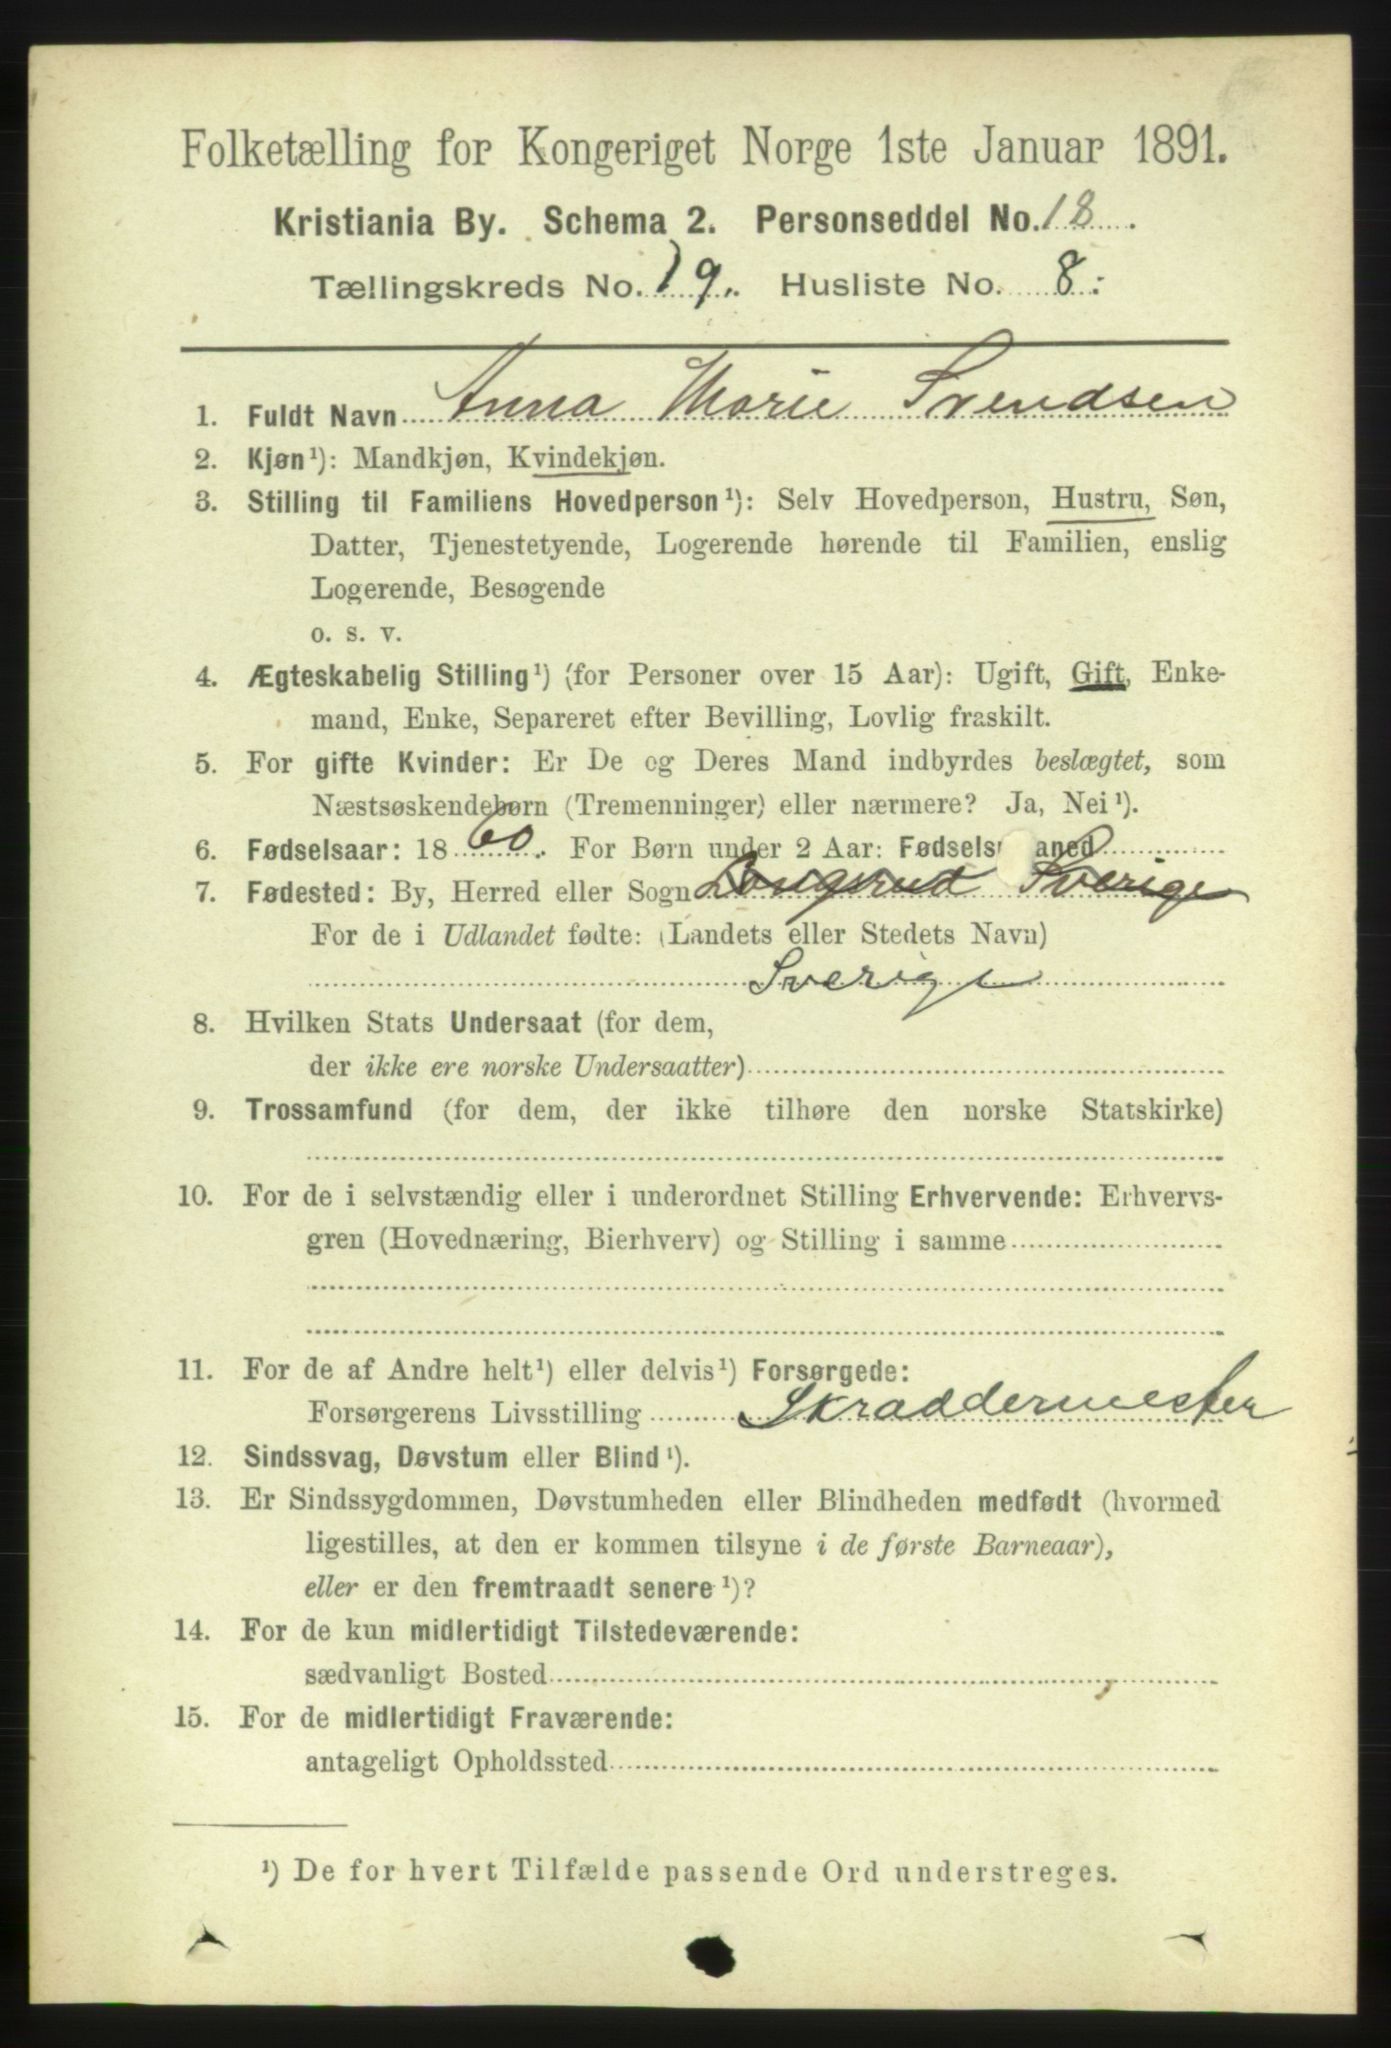 Folketælling for Kongeriget Norge 1ste Januar 1891.
Kristiania By. Schema 2. Personseddel No. 18.
Tællingskreds No. 19. Husliste No. 8.
1. Fuldt Navn Anna Marie Svendsen
2. Kjøn¹): Mandkjøn, Kvindekjøn.
3. Stilling til Familiens Hovedperson¹): Selv Hovedperson, Hustru, Søn,
Datter, Tjenestetyende, Logerende hørende til Familien, enslig
Logerende, Besøgende
o. s. v.
4. Ægteskabelig Stilling¹) (for Personer over 15 Aar): Ugift, Gift, Enke-
mand, Enke, Separeret efter Bevilling, Lovlig fraskilt.
5. For gifte Kvinder: Er De og Deres Mand indbyrdes beslægtet, som
Næstsøskendebørn (Tremenninger) eller nærmere? Ja, Nei¹).
6. Fødselsaar: 1860. For Børn under 2 Aar: Fødselsmaaned
7. Fødested: By, Herred eller Sogn Sverige
For de i Udlandet fødte: (Landets eller Stedets Navn)
Sverige
8. Hvilken Stats Undersaat (for dem,
der ikke ere norske Undersaatter)
9. Trossamfund (for dem, der ikke tilhøre den norske Statskirke)
10. For de i selvstændig eller i underordnet Stilling Erhvervende: Erhvervs-
gren (Hovednæring, Bierhverv) og Stilling i samme
11. For de af Andre helt¹) eller delvis¹) Forsørgede:
Forsørgerens Livsstilling Skraddermester
12. Sindssvag, Døvstum eller Blind¹).
13. Er Sindssygdommen, Døvstumheden eller Blindheden medfødt (hvormed
ligestilles, at den er kommen tilsyne i de første Barneaar),
eller er den fremtraadt senere¹)?
14. For de kun midlertidigt Tilstedeværende:
sædvanligt Bosted
15. For de midlertidigt Fraværende:
antageligt Opholdssted
¹) De for hvert Tilfælde passende Ord understreges.